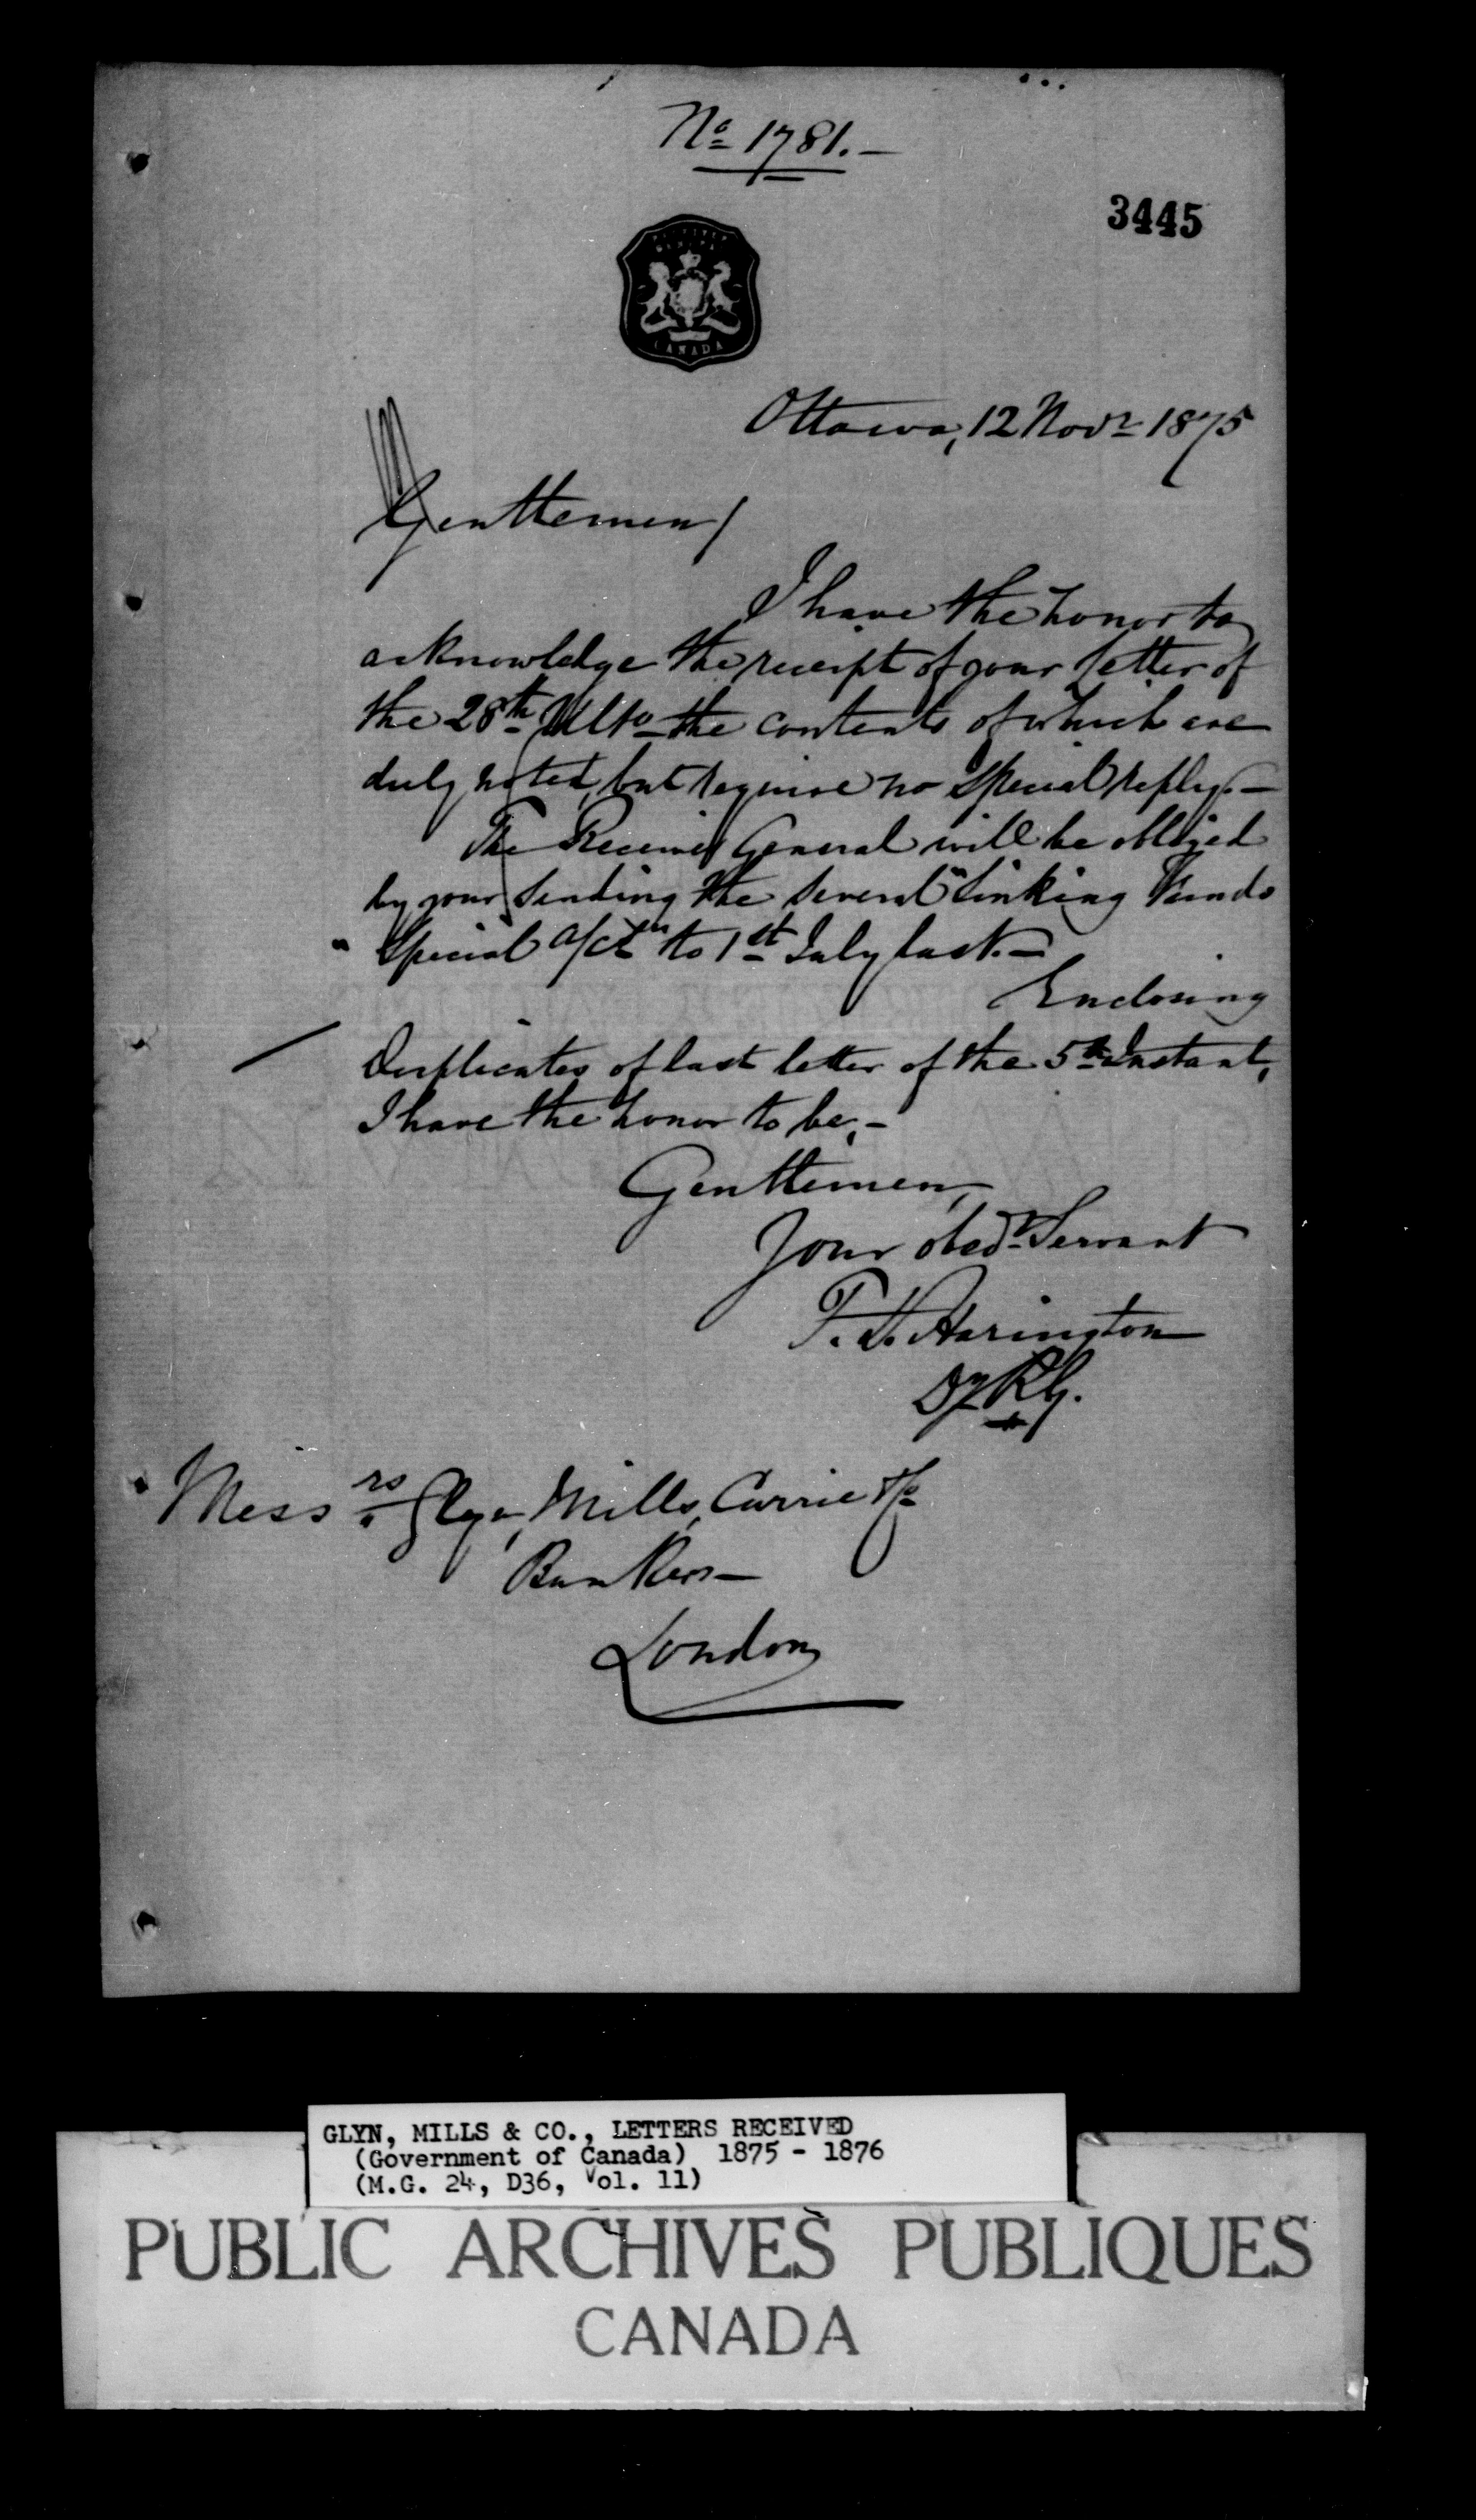 No 1781.—
3445
CANADA
Ottawa, 12 Novr 1875
Gentlemen/
I have the honor to
acknowledge the receipt of your letter of
the 28th Ulto the contents of which are
duly noted, but require no special reply.—
The Receiver General will be obliged
by your sending the several "Sinking Funds
" Special a/cts" to 1st July last.—
Enclosing
Duplicates of last letter of the 5th Instant,
I have the honor to be,—
Gentlemen,
Your obedt Servant
T. D. Harington
Dy RG.
Messrs Glyn, Mills, Currie & Co
Bankers—
London
GLYN, MILLS & CO., LETTERS RECEIVED
(Government of Canada) 1875 - 1876
(M.G. 24, D36, Vol. 11)
PUBLIC ARCHIVES PUBLIQUES
CANADA